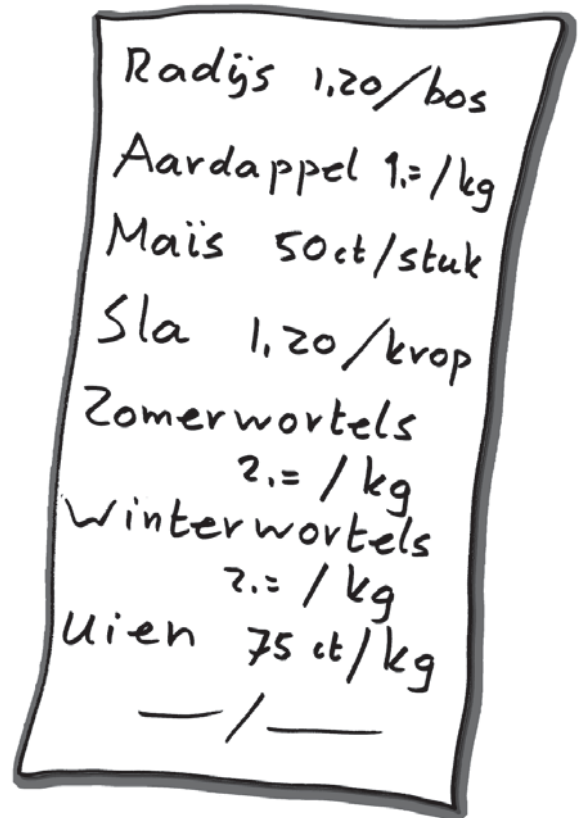 Radijs 1,20/bos
Aardappel 1.=/kg
Maïs 50ct/stuk
Sla 1,20/krop
Zomerwortels
2.=/kg
Winterwortels
2.=/kg
Uien 75 ct/kg
__/__